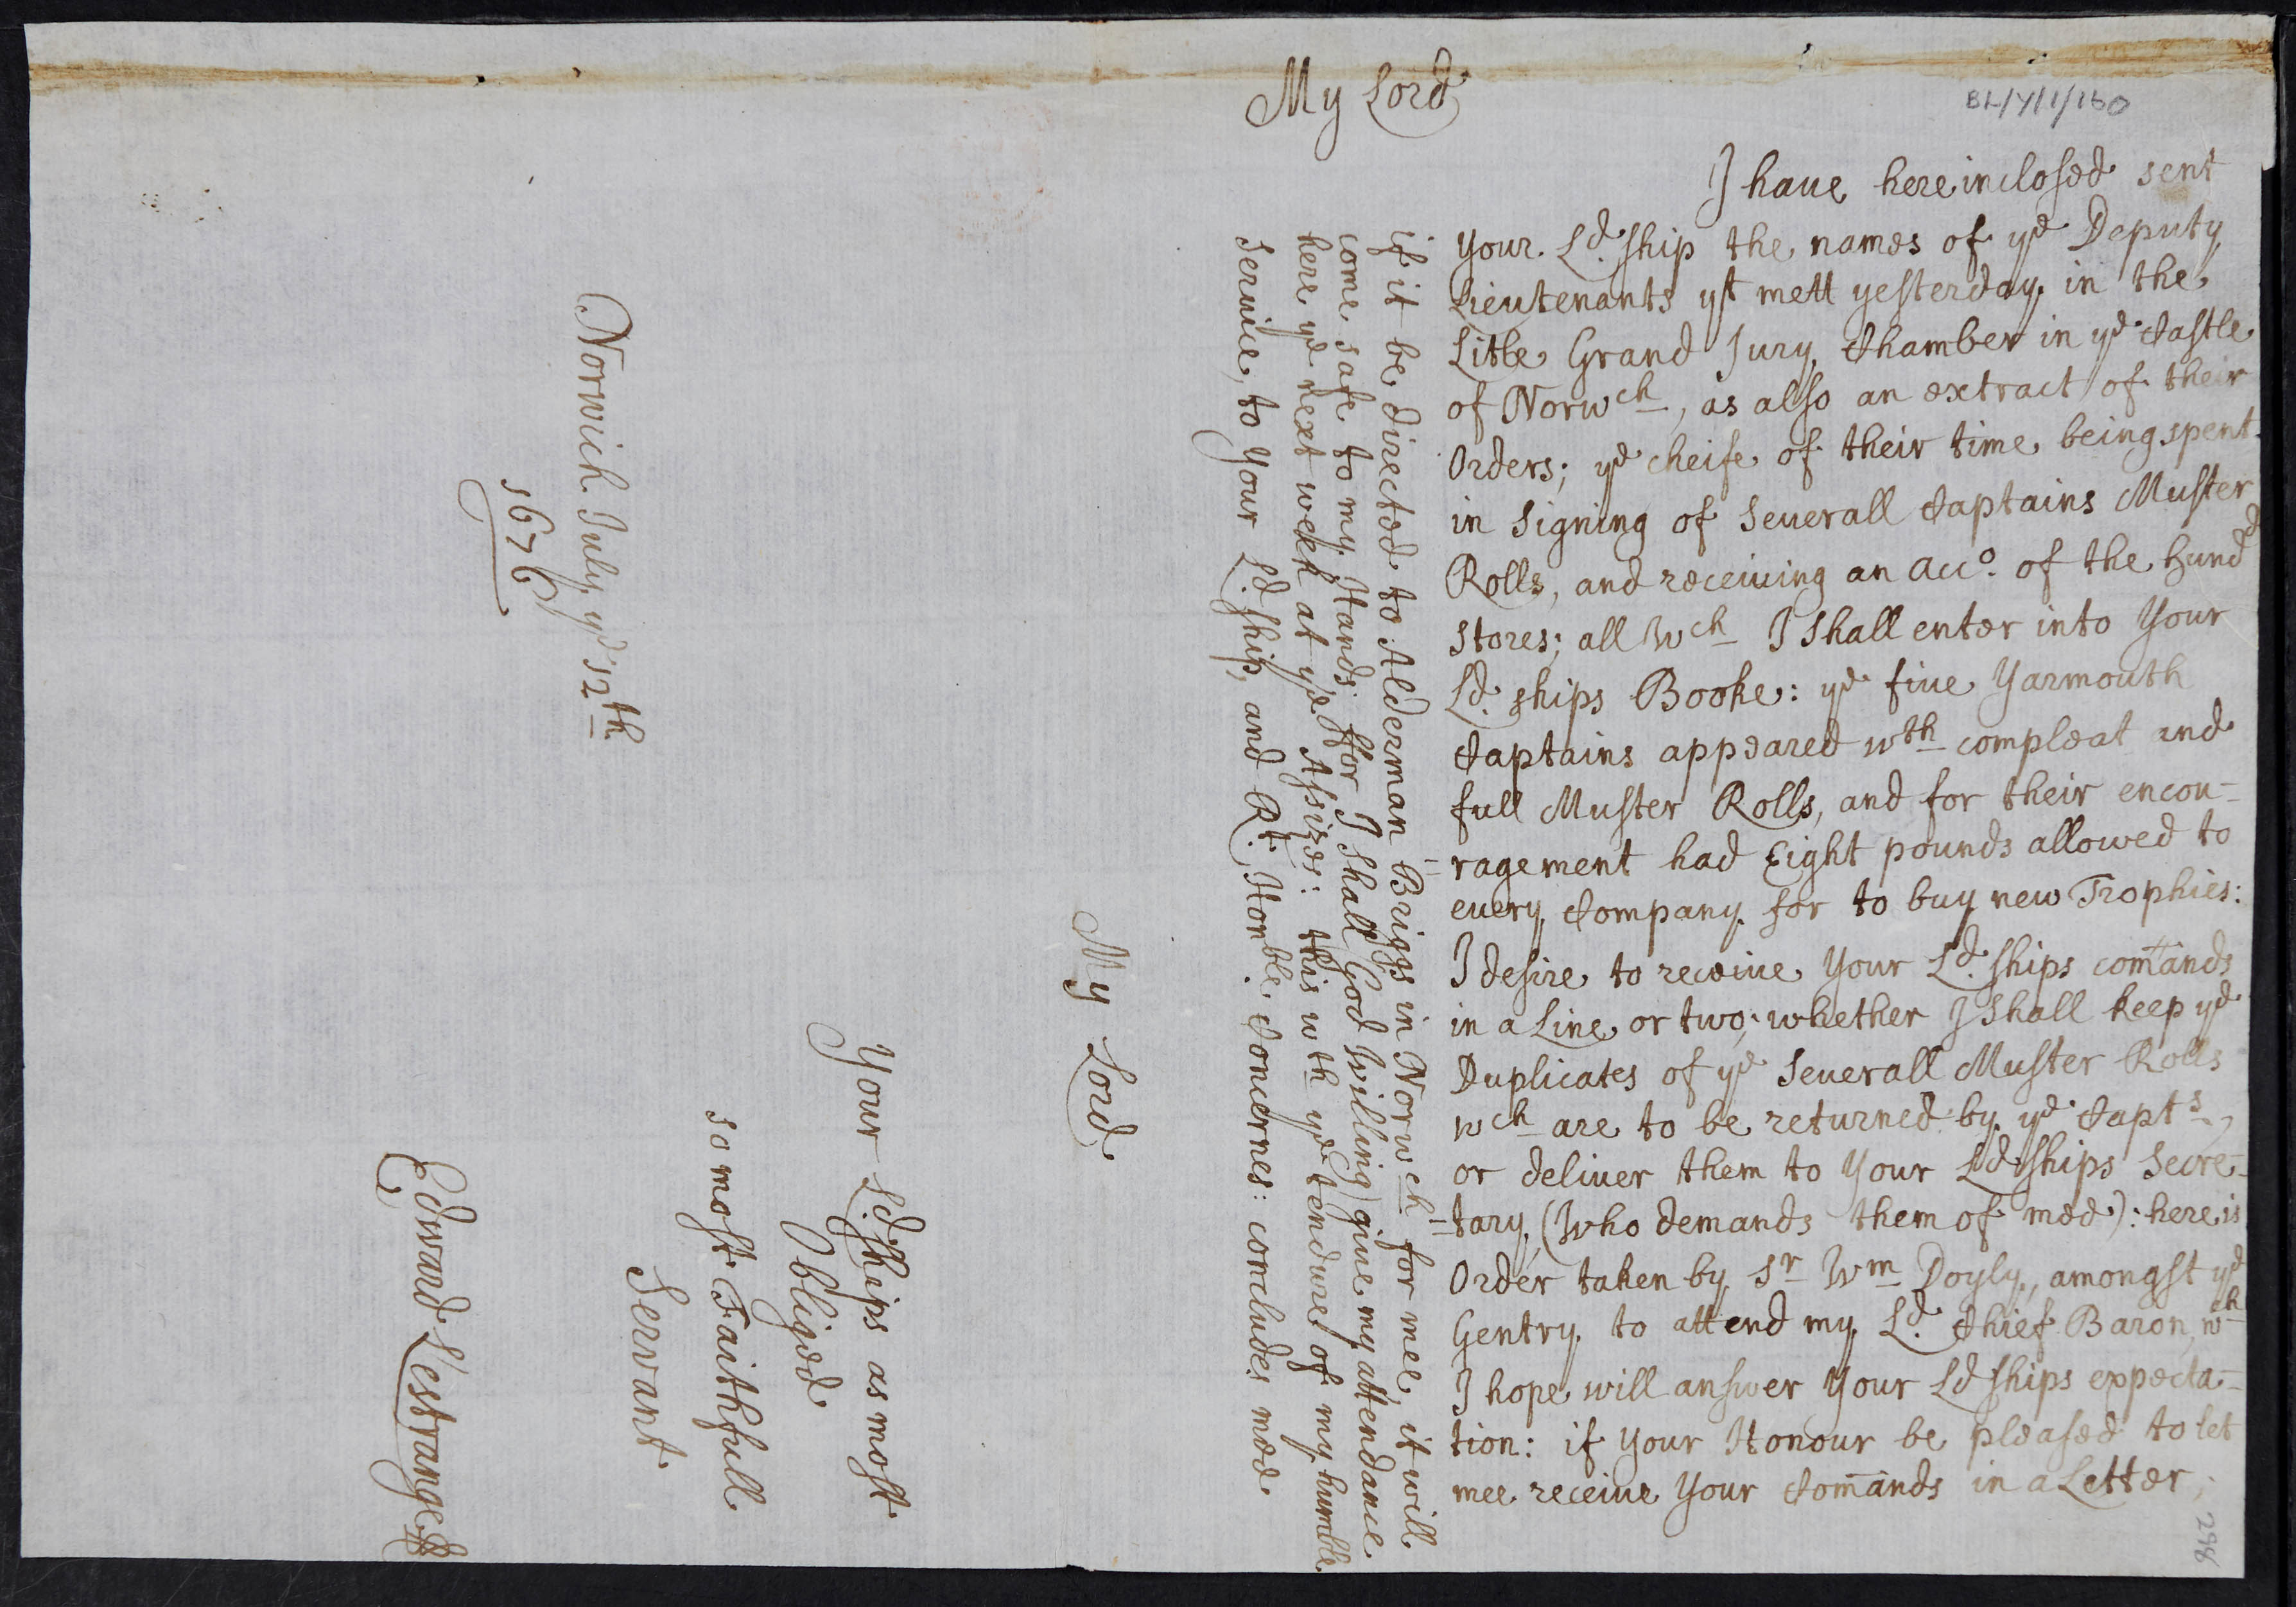 BL/Y/1/160
My Lord
I haue here inclosed sent
your Ld.ship the names of ye Deputy
Lieutenants yt mett yesterday in the
Litle Grand Jury Chamber in ye Castle
of Norwch, as also an extract of their
Orders; ye cheife of their time being spent
in signing of Seuerall Captains Muster
Rolls, and receiuing an Acco. of the Hundd
Stores; all wch I shall enter into Your
Ld.ships Booke: ye fiue Yarmouth
Captains appeared wth compleat and
full Muster Rolls, and for their encou-
=ragement had Eight pounds allowed to
euery Company for to buy new Trophies:
I desire to receiue Your Ld.ships comands
in a Line or two; whether I shall keep ye
Duplicates of ye Seuerall Muster Rolls
wch are to be returned by ye Capts,
or deliuer them to Your Ldships Secre-
=tary, (Who demands them of mee): here is
Order taken by Sr Wm Doyly, amongst ye
Gentry to attend my Ld. Chief Baron, wch
I hope will answer Your Ldships expecta-
tion: if Your Honour be pleased to let
mee receiue Your Comands in a Letter,
if it be directed to Alderman Briggs in Norwch for mee, it will
come safe to my Hands; ffor I shall (God Willing) giue my attendance
here ye next week at ye Assizes: this wth ye tendure of my humble
seruice, to Your Ld.ship, and Rt. Honble. Concernes: concludes mee
My Lord
Your Ldships as most
Obliged
so most Faithfull
Servant
Edward L'estrange
Norwich July ye 12th
1676
288